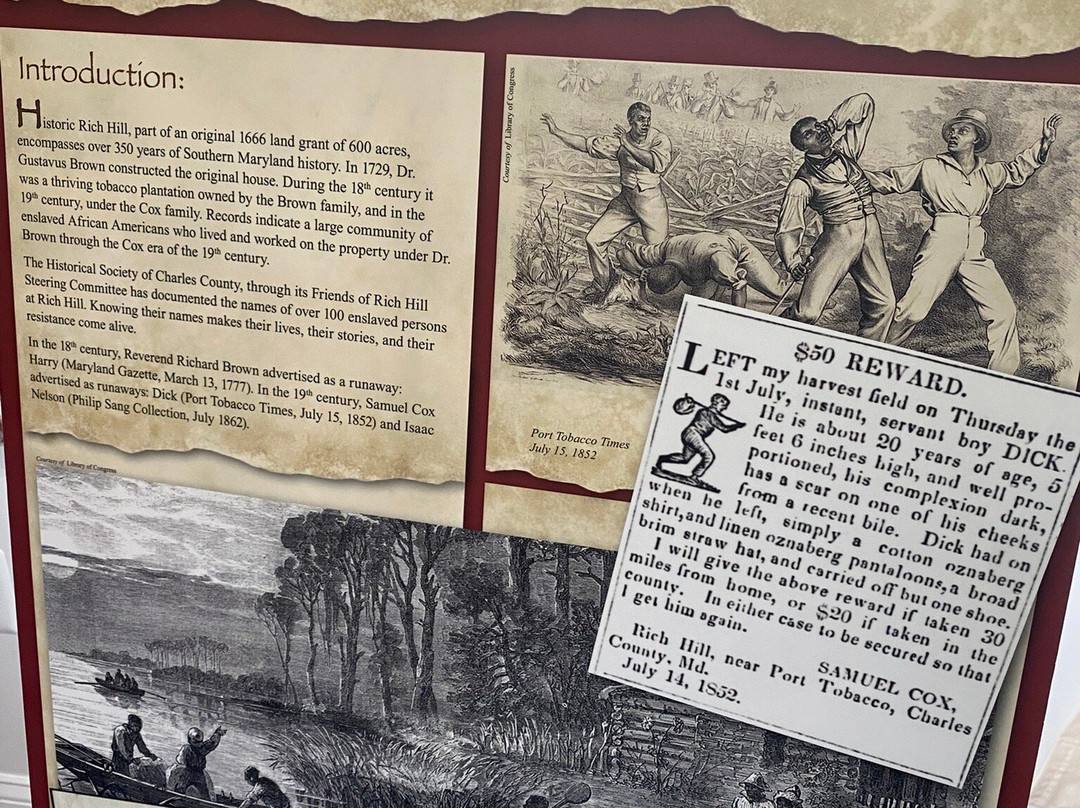 Introduction:
Historic Rich Hill, part of an original 1666 land grant of 600 acres,
encompasses over 350 years of Southern Maryland history. In 1729, Dr.
Gustavus Brown constructed the original house. During the 18th century it
was a thriving tobacco plantation owned by the Brown family, and in the
19th century, under the Cox family. Records indicate a large community of
enslaved African Americans who lived and worked on the property under Dr.
Brown through the Cox era of the 19th century.
The Historical Society of Charles County, through its Friends of Rich Hill
Steering Committee has documented the names of over 100 enslaved persons
at Rich Hill. Knowing their names makes their lives, their stories, and their
resistance come alive.
In the 18th century, Reverend Richard Brown advertised as a runaway:
Harry (Maryland Gazette, March 13, 1777). In the 19th century, Samuel Cox
advertised as runaways: Dick (Port Tobacco Times, July 15, 1852) and Isaac
Nelson (Philip Sang Collection, July 1862).
Courtesy of Library of Congress
Courtesy of Library of Congress
Port Tobacco Times
July 15, 1852
$50 REWARD.
LEFT my harvest field on Thursday the
1st July, instant, servant boy DICK.
He is about 20 years of age, 5
feet 6 inches high, and well pro-
portioned, his complexion dark,
has a scar on one of his cheeks
from a recent bile. Dick had on
when he left, simply a cotton oznaberg
shirt, and linen oznaberg pantaloons, a broad
brim straw hat, and carried off but one shoe.
I will give the above reward if taken 30
miles from home, or $20 if taken in the
county. In either case to be secured so that
I get him again.
SAMUEL COX,
Rich Hill, near Port Tobacco, Charles
County, Md.
July 14, 1852.